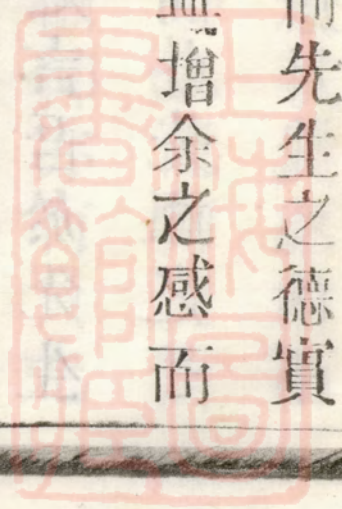 而先生之德實
益增余之感而